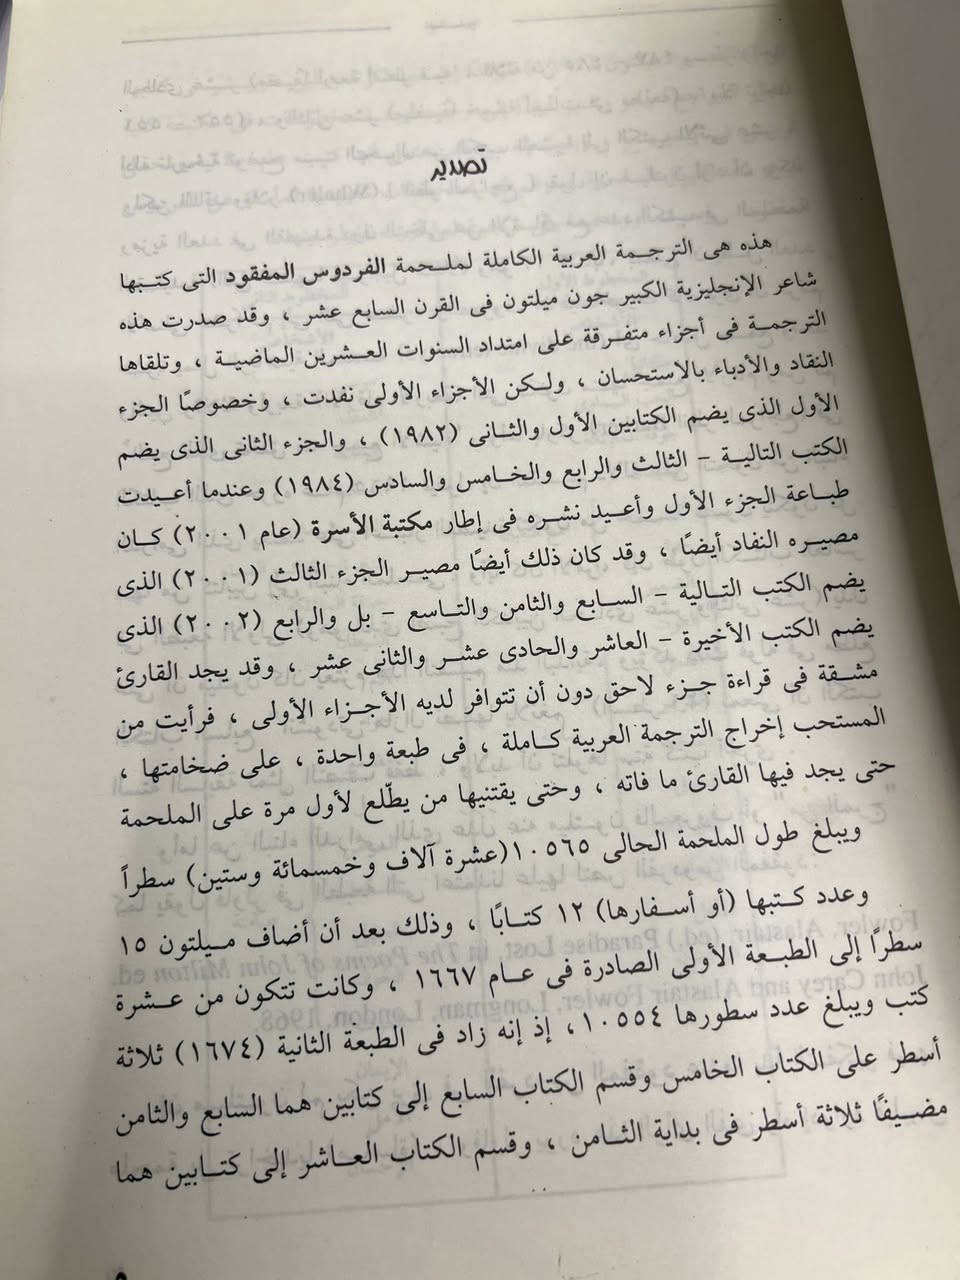 تصدير
هذه هى الترجمة العربية الكاملة لملحمة الفردوس المفقود التى كتبها
شاعر الإنجليزية الكبير جون ميلتون فى القرن السابع عشر ، وقد صدرت هذه
الترجمة فى أجزاء متفرقة على امتداد السنوات العشرين الماضية ، وتلقاها
النقاد والأدباء بالاستحسان ، ولكن الأجزاء الأولى نفدت ، وخصوصًا الجزء
الأول الذى يضم الكتابين الأول والثانى (١٩٨٢) ، والجزء الثانى الذى يضم
الكتب التالية - الثالث والرابع والخامس والسادس (١٩٨٤) وعندما أعيدت
طباعة الجزء الأول وأعيد نشره فى إطار مكتبة الأسرة (عام ٢٠٠١) كان
مصيره النفاد أيضًا ، وقد كان ذلك أيضًا مصير الجزء الثالث (٢٠٠١) الذى
يضم الكتب التالية - السابع والثامن والتاسع - بل والرابع (٢٠٠٢) الذى
يضم الكتب الأخيرة - العاشر والحادى عشر والثانى عشر ، وقد يجد القارئ
مشقة فى قراءة جزء لاحق دون أن تتوافر لديه الأجزاء الأولى ، فرأيت من
المستحب إخراج الترجمة العربية كاملة ، فى طبعة واحدة ، على ضخامتها ،
حتى يجد فيها القارئ ما فاته ، وحتى يقتنيها من يطّلع لأول مرة على الملحمة
ويبلغ طول الملحمة الحالى ١٠٥٦٥ (عشرة آلاف وخمسمائة وستين) سطراً
وعدد كتبها (أو أسفارها) ١٢ كتابًا ، وذلك بعد أن أضاف ميلتون ١٥
سطرًا إلى الطبعة الأولى الصادرة فى عام ١٦٦٧ ، وكانت تتكون من عشرة
كتب ويبلغ عدد سطورها ١٠٥٥٤ ، إذ إنه زاد فى الطبعة الثانية (١٦٧٤) ثلاثة
أسطر على الكتاب الخامس وقسم الكتاب السابع إلى كتابين هما السابع والثامن
مضيفًا ثلاثة أسطر فى بداية الثامن ، وقسم الكتاب العاشر إلى كتابين هما